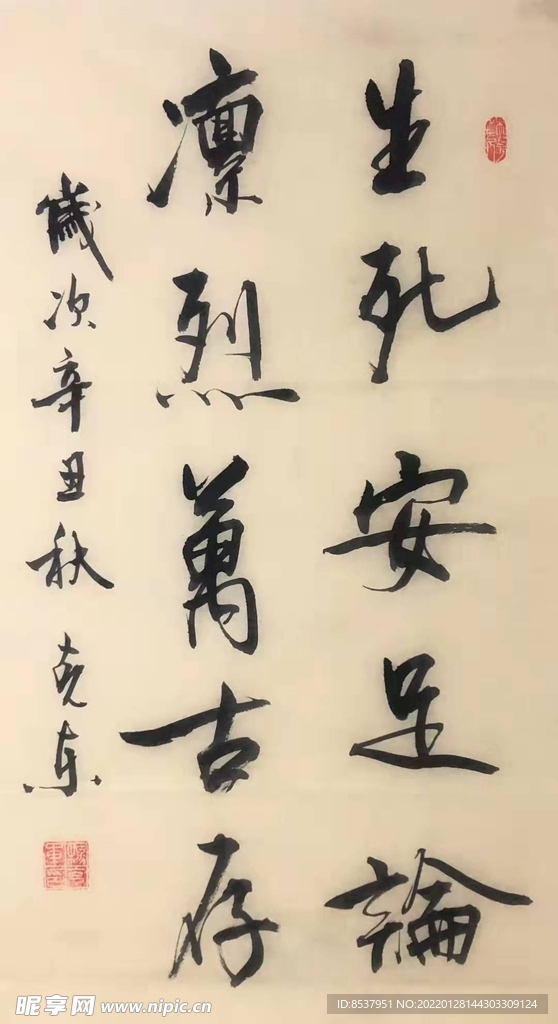 生死安足論
凛烈萬古存
歲次辛丑秋 克東
昵享网 www.nipic.cn
ID:8537951 NO:20220128144303309124